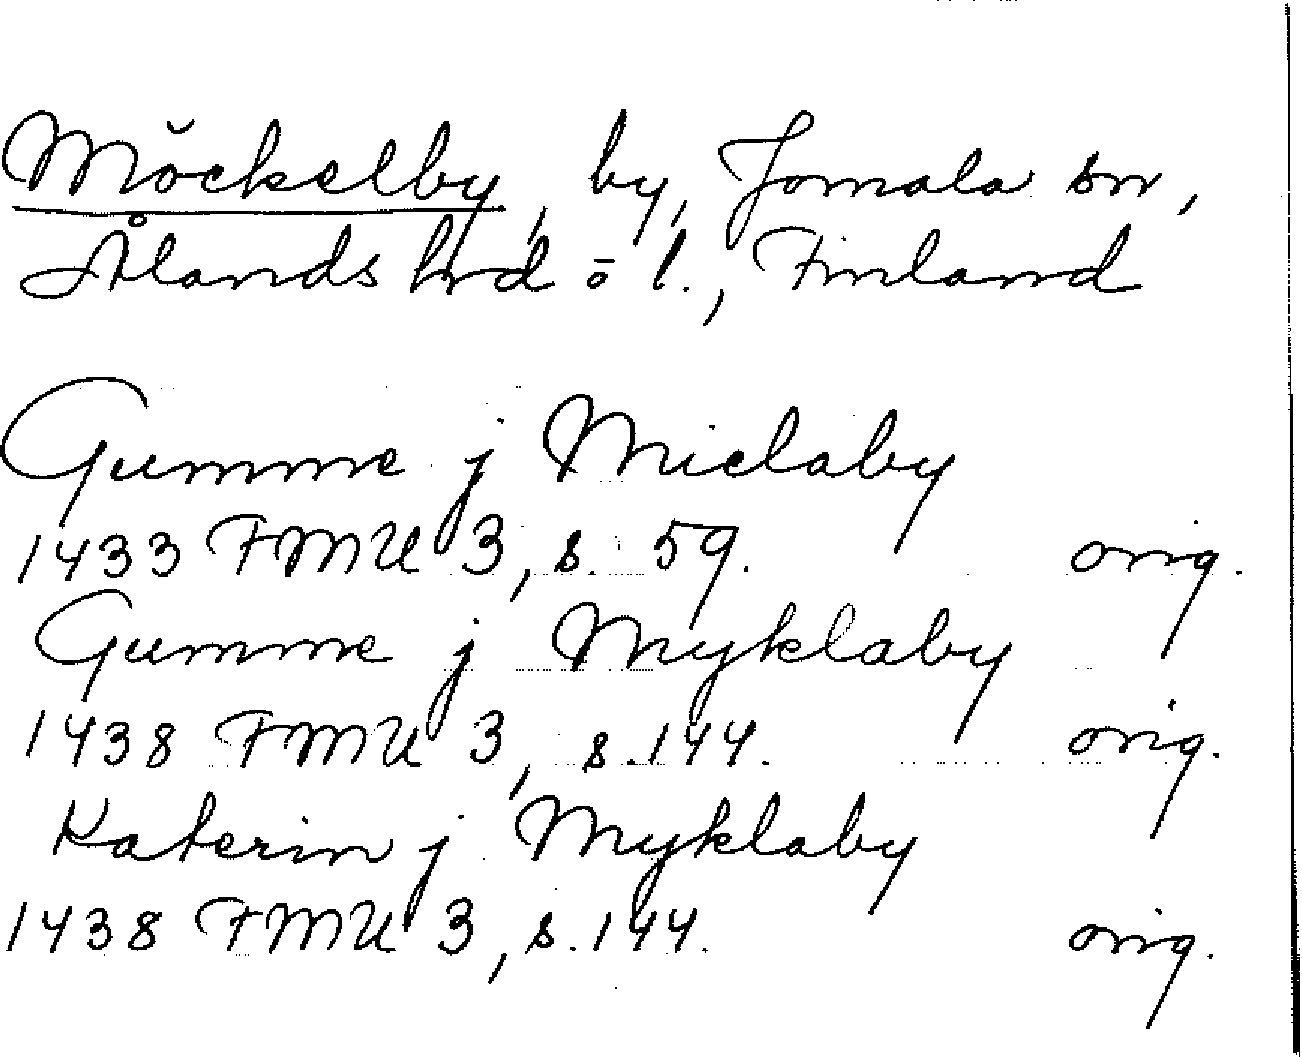 Möckelby, by, Jomala sn,
Ålands hrd o l., Finland
Gumme j Miclaby
1433 FMU 3, s. 59. orig.
Gumme j Myklaby
1438 FMU 3, s. 144. orig.
Katerin j Myklaby
1438 FMU 3, s. 144. orig.